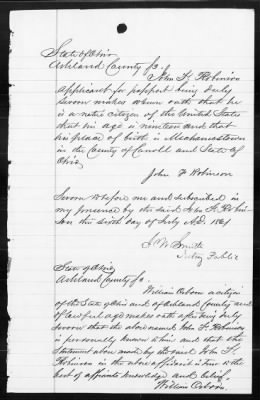 State of Ohio
Ashland County ss.
John F. Robinson
Applicant for passport being duly
sworn makes when oath that he
is a native citizen of the United States
that his age is nineteen and that
his place of birth is Mechanicstown
in the County of Carroll and State of
Ohio.
John F Robinson
Sworn to before me and subscribed in
my presence by the said John F. Robin-
son this sixth day of July A.D. 1881
Smith
Notary Public
State of Ohio
Ashland County ss.
William Osborn a citizen
of the State of Ohio and of Ashland County and
of lawful age makes oath after being duly
sworn that the above named John F. Robinson
is personally known to him and that the
Statement above made by the said John F.
Robinson in the above affidavit is true to the
best of affiants knowledge and belief.
William Osborn.